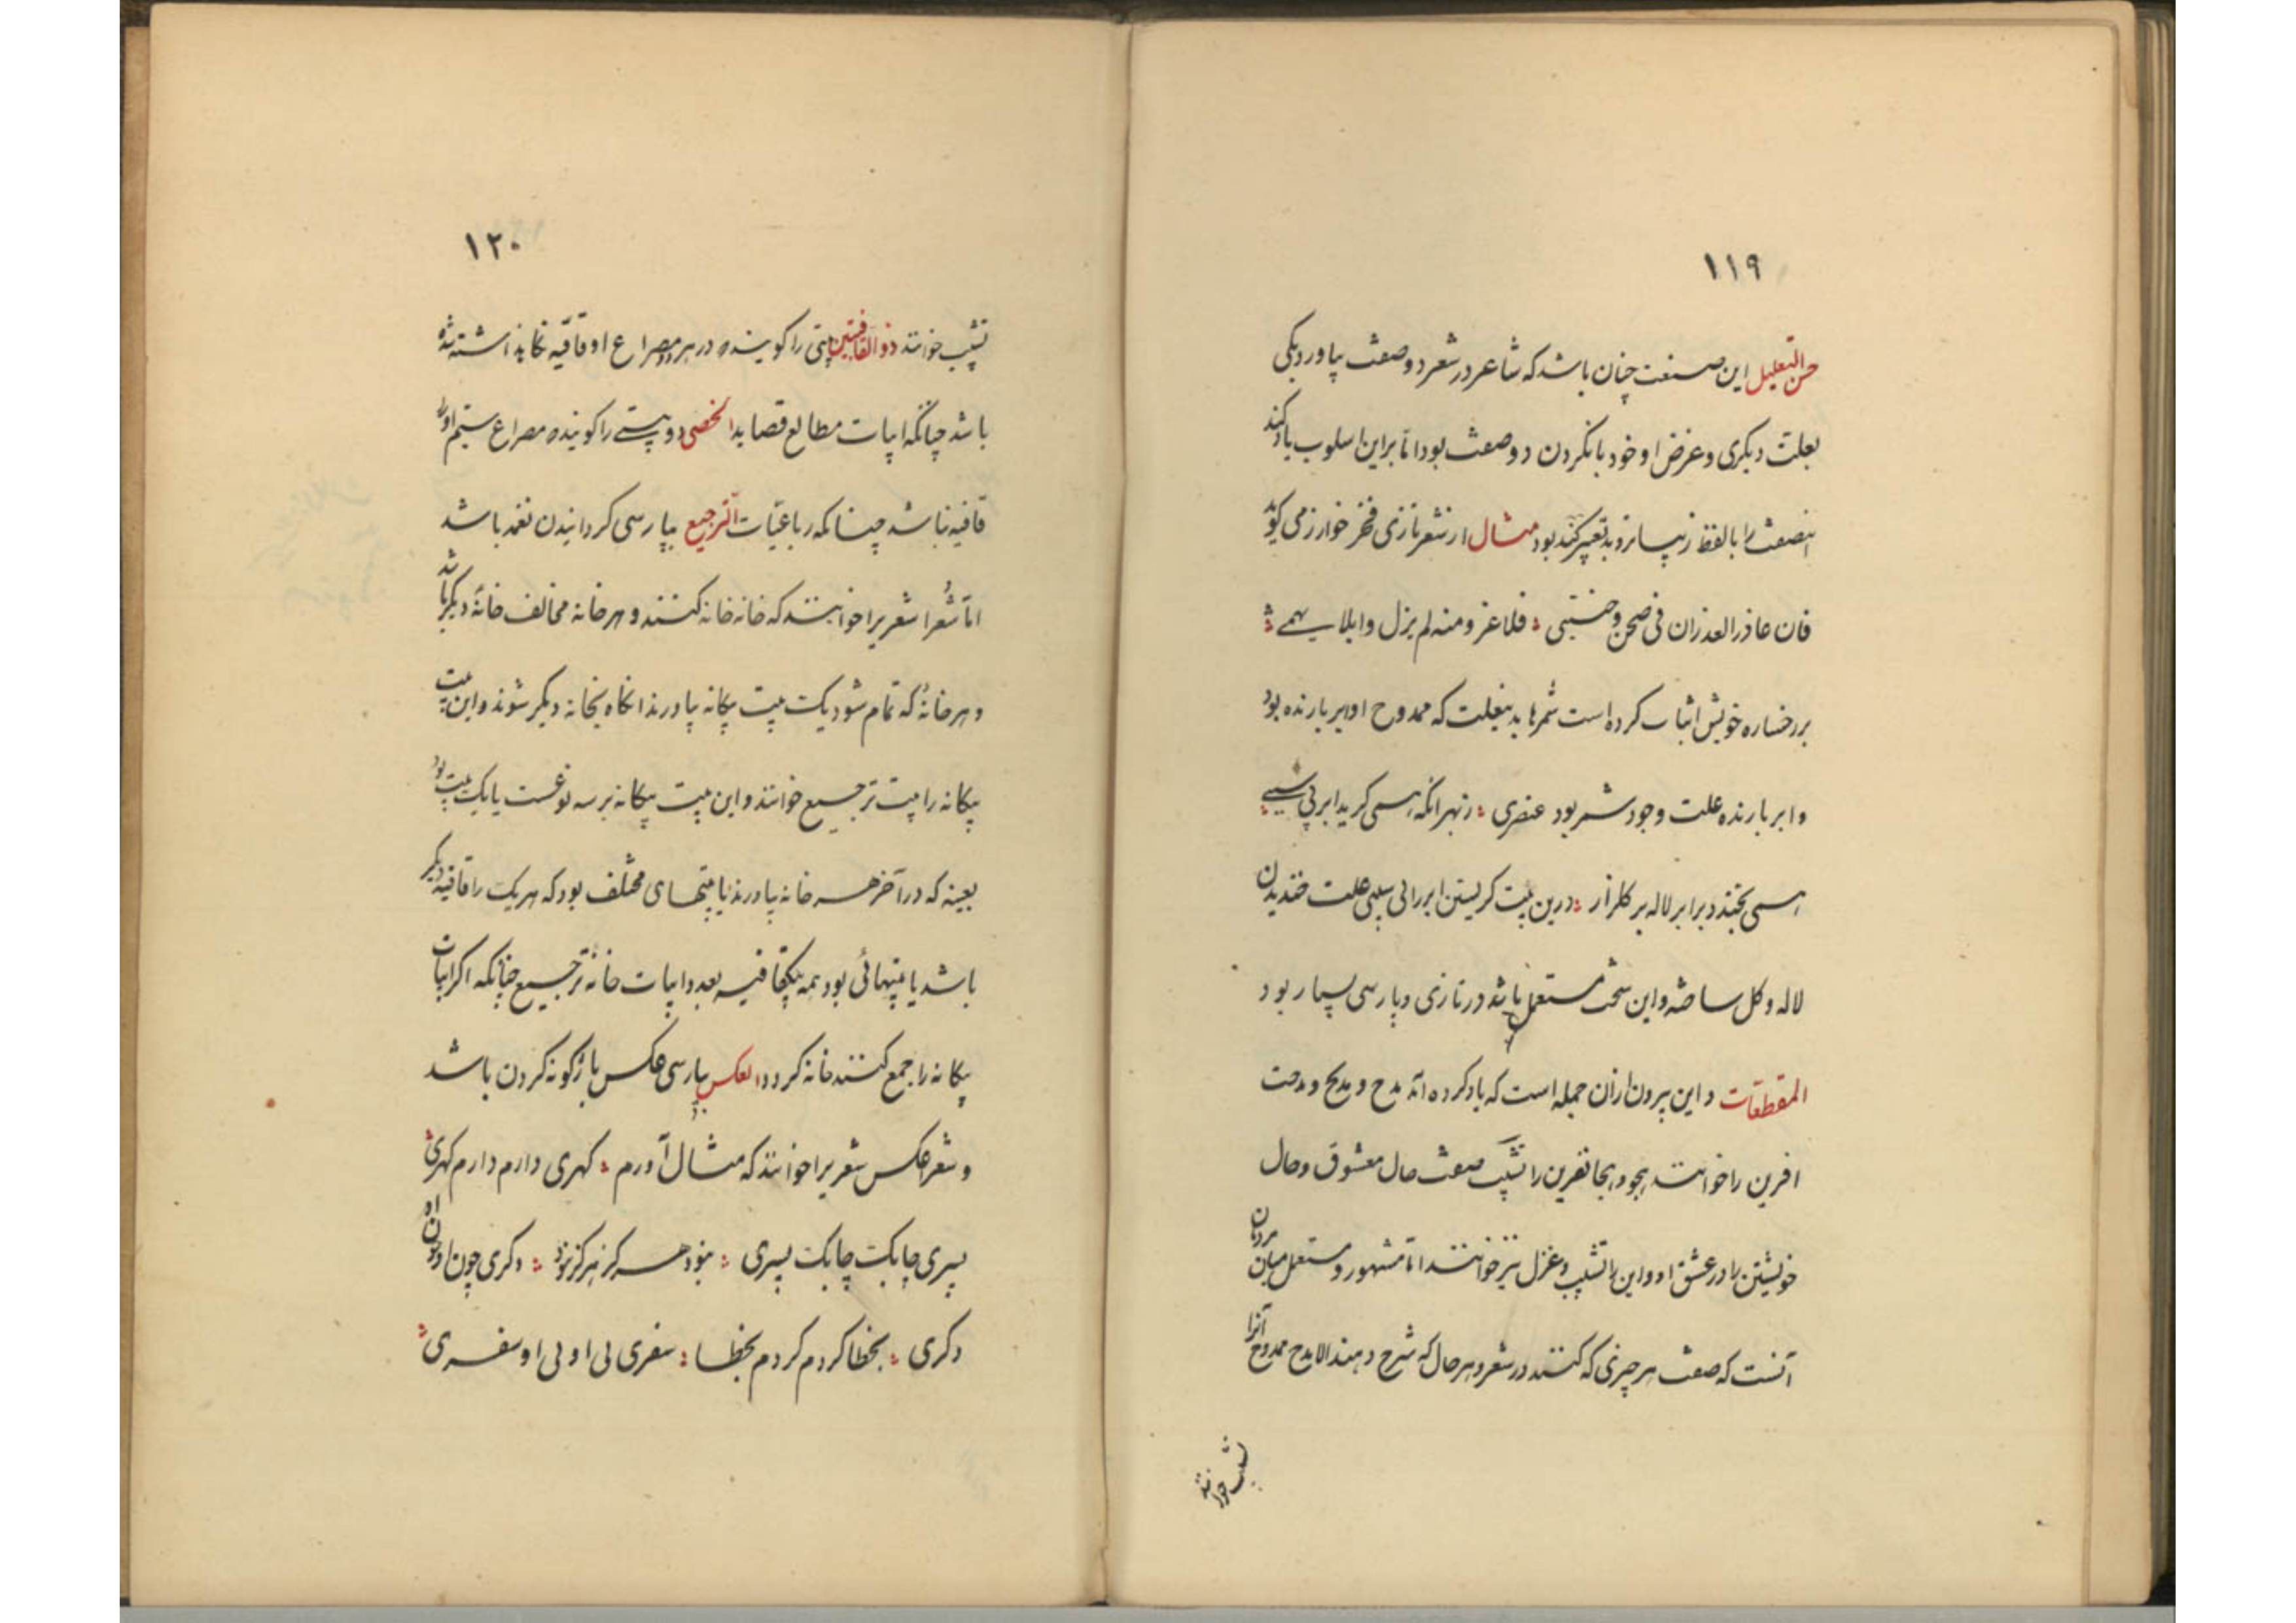 ۱۱۹
حسن التعلیل این صنعت چنان باشد که شاعر در شعر دو صفت بیاورد یکی
بعلت دیکری و غرض او خود یانکردن دو صفت بود اما براین اسلوب یاد کند
بود مثال از شعر تازی فخر خوارزمی کوید
فان عاذر العذران فی صحن وجنتی فلا غرو منه لم یزل وابلا یهمی
بر رخساره خویش اثبات کرده است شمرها بدینعلت که ممدوح او ابر بارنده بود
و ابر بارنده علت وجود شمر بود عنصری زبهر انکه همی کرید ابر بی سببی
همی بخندد برابر لاله بر کلزار درین بیت کریستن ابر را بی سببی علت خندیدن
لاله و کل ساخته و این سخت مستعمل باشد در تازی و پارسی بسیار بود
المقطعات و این بیرون ازان جمله است که یاد کرده آمد مدح و مدیح و مدحت
افرین را خوانند هجو و هجا نفرین را تشبیب صفت حال معشوق و حال
خویشتن را در عشق او و این را تشبیب و غزل نیز خوانند اما مشهور و مستعمل میان مردمان
آنست که صفت هر چیزی که کنند در شعر و هر حال که شرح دهند الا مدح ممدوح آنرا
تشبیب خوانند
۱۲۰
تشبیب خوانند ذو القافیتین بیتی را کویند در هر دو مصراع او قافیه نکاه داشته شده
باشد چنانکه ابیات مطالع قصاید الخصی دو بیتی را کویند مصراع سیم او را
قافیه نباشد چنانکه رباعیات الترجیع بپارسی کردانیدن نغمه باشد
اما شعرا شعریرا خوانند که خانه خانه کنند و هر خانه مخالف خانهٔ دیکر باشد
و هر خانهٔ که تمام شود یکت بیت بیکانه بیاورند انکاه بخانه دیکر شوند و این بیت
بیکانه را بیت ترجیع خوانند و این بیت بیکانه بر سه نوعست یا یک بیت بود
بعینه که در آخر هر خانه بیاورند یا بیتهای مختلف بود که هر یکت را قافیه دیکر
باشد یا بیتهائی بود همه بیکقافیه بعدد ابیات خانهٔ ترجیع چنانکه اکر ابیات
بیکانه را جمع کنند خانه کردد العکس بپارسی عکس باژکونه کردن باشد
و شعر عکس شعریرا خوانند که مثال آورم کهری دارم دارم کهری
پسری چابکت چابکت پسری نبود هرکز هرکز نبود دکری چون او چون او
دکری بخطا کردم کردم بخطا سفری بی او بی او سفری